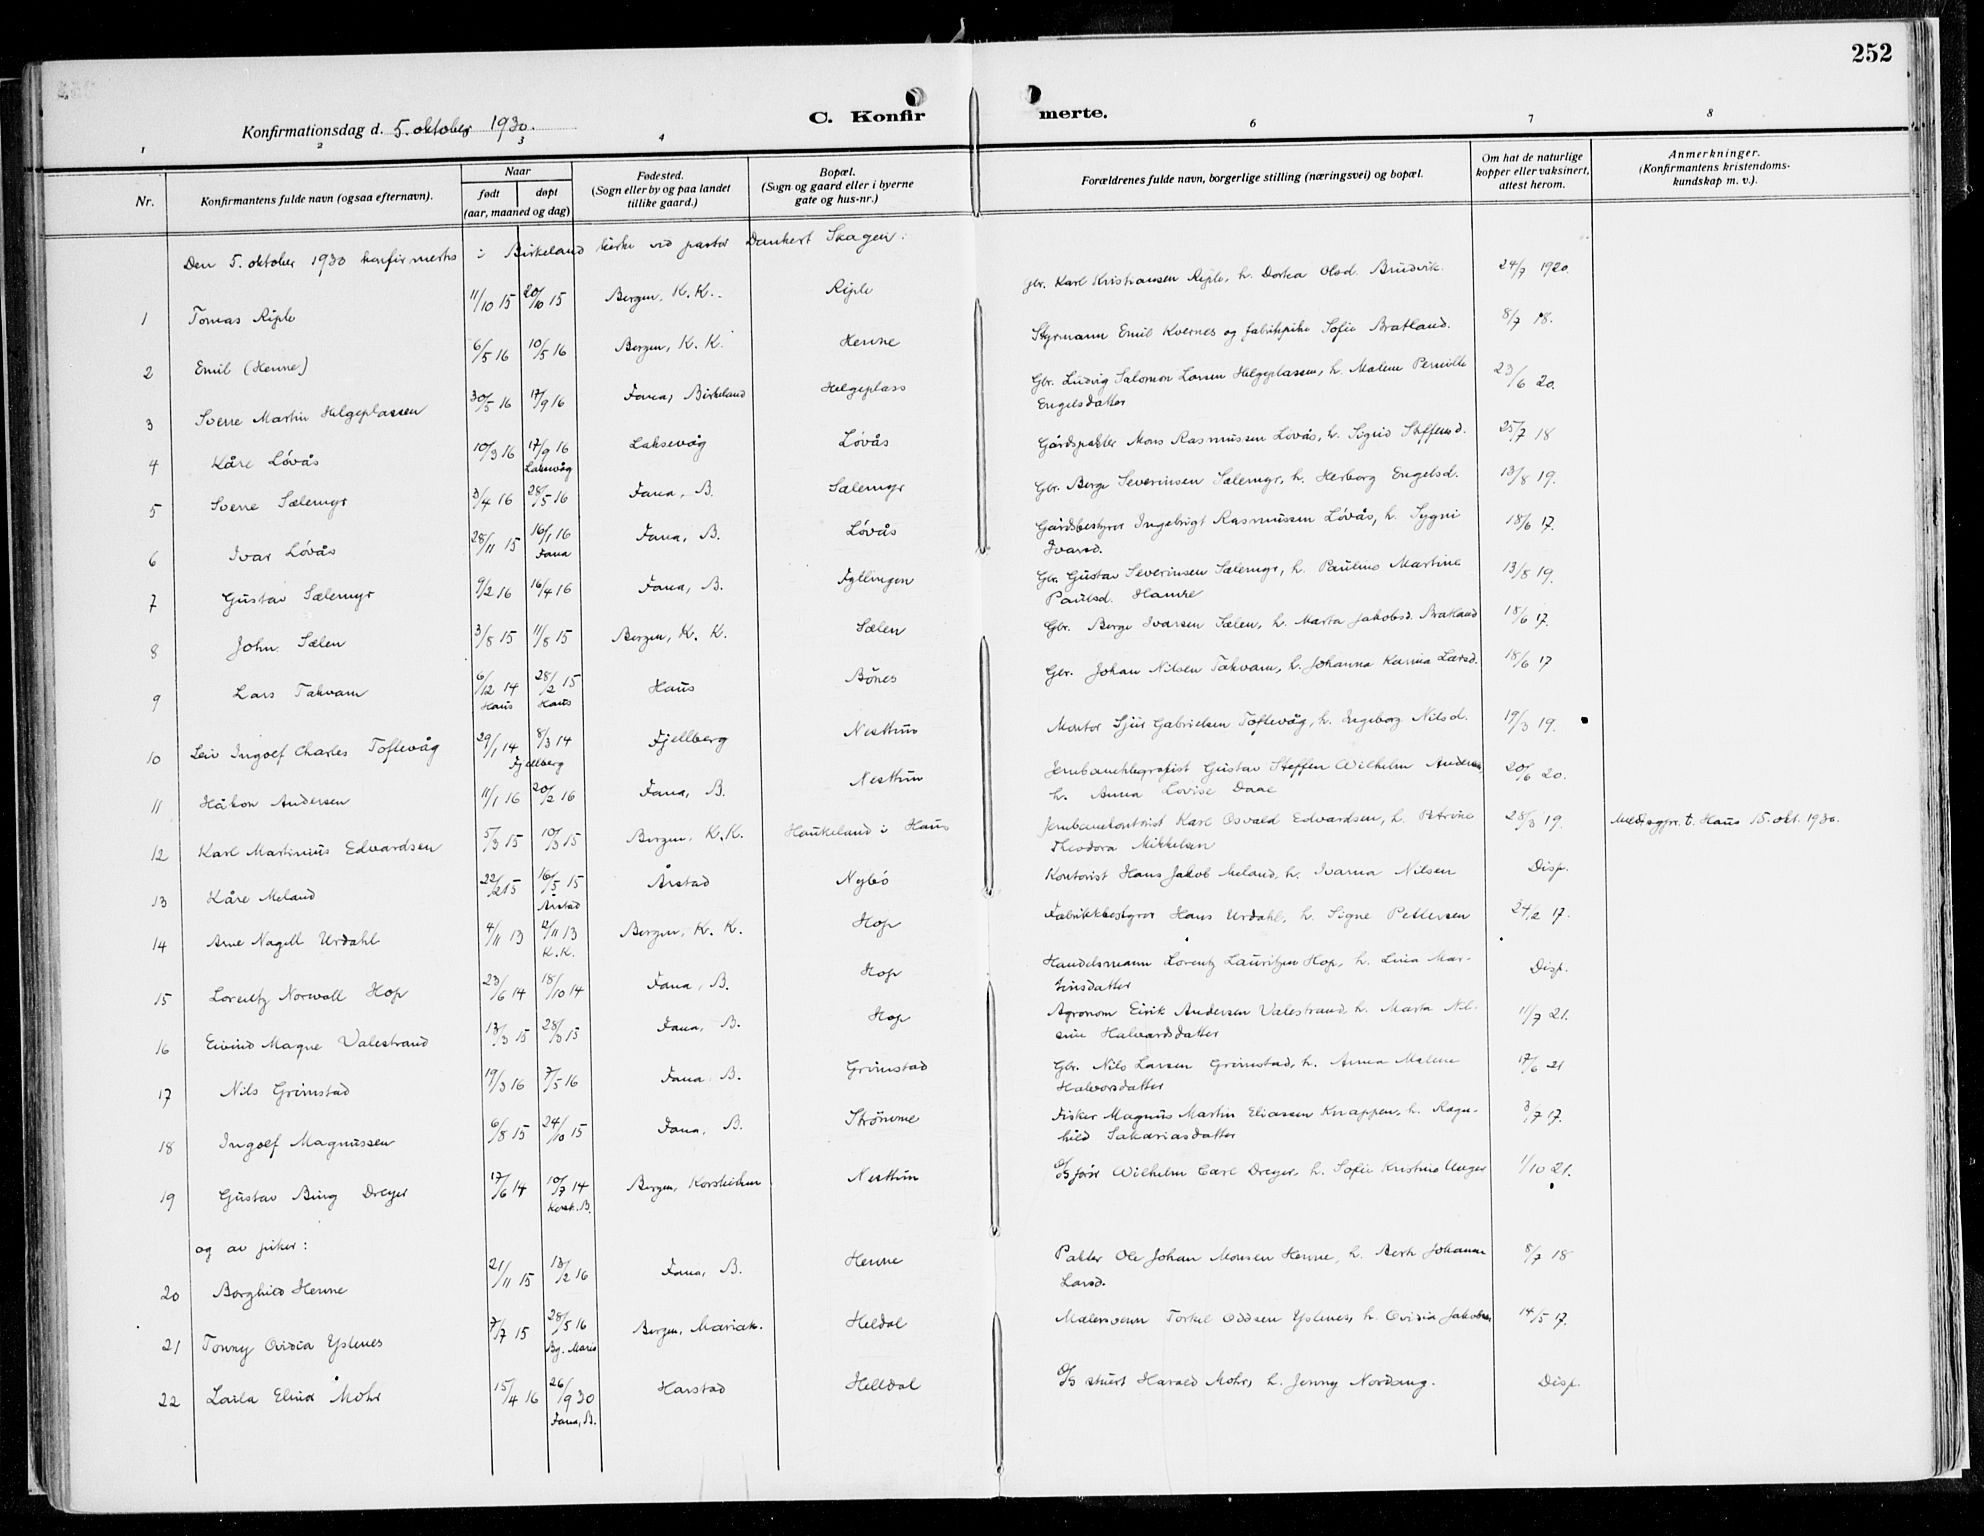 252
Konfirmationsdag d. 5. oktober 1930.
C. Konfir
merte.
1 2 3 4 6 7 8
Nr.
Konfirmantens fulde navn (ogsaa efternavn).
Naar
født døpt
(aar, maaned og dag)
Fødested.
(Sogn eller by og paa landet
tillike gaard.)
Bopæl.
(Sogn og gaard eller i byerne
gate og hus-nr.)
Forældrenes fulde navn, borgerlige stilling (næringsvei) og bopæl.
Om hat de naturlige
kopper eller vaksinert,
attest herom.
Anmerkninger.
(Konfirmantens kristendoms-
kundskap m. v.).
Den 5. oktober 1930 konfirmertes i Birkeland kirke ved pastor Dankert Skagen:
1 Tomas Riple 11/10 15 20/10 15 Bergen, K. K. Riple Gbr. Karl Kristiansen Riple, h. Dortea Olsd. Brudvik. 24/7 1920.
2 Emil (Henne) 6/5 16 10/5 16 Bergen, K. K. Henne Styrmann Emil Kvernes og fabrikpike Sofie Bratland. 8/7 18.
3 Sverre Martin Helgeplassen 30/5 16 17/9 16 Fana, Birkeland Helgeplass Gbr. Ludvig Salomon Larsen Helgeplassen, h. Malene Pernille 23/6 20.
Engelsdatter
4 Kåre Løvås 10/3 16 17/9 16 Laksevåg Løvås Gårdspakter Mons Rasmussen Løvås, h. Sigrid Steffensd. 25/7 18
Laksevåg
5 Sverre Sælemyr 3/4 16 28/5 16 Fana, B. Sælemyr Gbr. Berge Severinsen Sælemyr, h. Herborg Engelsd. 13/8 19.
6 Ivar Løvås 28/11 15 16/1 16 Fana, B. Løvås Gårdsbestyrer Ingebrigt Rasmussen Løvås, h. Sygni 18/6 17.
Fana Ivarsd.
7 Gustav Sælemyr 9/2 16 16/4 16 Fana, B. Fyllingen Gbr. Gustav Severinsen Sælemyr, h. Pauline Martine 13/8 19.
Paulsd. Hamre
8 John Sælen 3/8 15 11/8 15 Bergen, K. K. Sælen Gbr. Berge Ivarsen Sælen, h. Marta Jakobsd. Bratland 18/6 17.
9 Lars Takvam 6/12 14 28/2 15 Haus Bønes Gbr. Johan Nilsen Takvam, h. Johanna Karina Larsd. 18/6 17
Haus Haus
10 Leiv Ingolf Charles Toftevåg 29/1 14 8/3 14 Fjellberg Nesttun Montør Sjur Gabrielsen Toftevåg, h. Ingeborg Nilsd. 19/3 19.
Fjellberg
11 Håkon Andersen 11/1 16 20/2 16 Fana, B. Nesttun Jernbanetelegrafist Gustav Steffen Wilhelm Andersen 20/6 20.
h. Anna Lovise Daae
12 Karl Martinius Edvardsen 5/3 15 10/3 15 Bergen, K. K. Haukeland i Haus Jernbanekontorist Karl Osvald Edvardsen, h. Petrine 28/3 19. t. Haus 15. okt. 1930.
Theodora Mikkelsen
13 Kåre Meland 22/2 15 16/5 15 Årstad Nybø Kontorist Hans Jakob Meland, h. Ivarna Nilsen Disp.
Årstad
14 Arne Nagell Urdahl 4/11 13 12/11 13 Bergen, K. K. Hop Fabrikkbestyrer Hans Urdahl, h. Signe Pettersen 24/2 17.
K. K.
15 Lorentz Norwall Hop 23/6 14 18/10 14 Fana, B. Hop Handelsmann Lorentz Lauritzen Hop, h. Lina Mar- Disp.
tinsdatter
16 Eivind Magne Valestrand 13/3 15 28/3 15 Fana, B. Hop Agronom Eirik Andersen Valestrand, h. Marta Nil- 11/7 21.
sine Halvardsdatter
17 Nils Grimstad 19/3 16 7/5 16 Fana, B. Grimstad Gbr. Nils Larsen Grimstad, h. Anna Malene 17/6 21
Halvorsdatter
18 Ingolf Magnussen 6/8 15 24/10 15 Fana, B. Strømme Fisker Magnus Martin Eliassen Knappen, h. Ragn- 3/7 17.
hild Sakariasdatter
19 Gustav Bing Dreyer 17/6 14 10/7 14 Bergen, Korskirken Nesttun Wilhelm Carl Dreyer, h. Sofie Kristine Unger 1/10 21.
Korsk. B.
og av piker:
20 Borghild Henne 21/11 15 13/2 16 Fana, B. Henne Pakter Ole Johan Monsen Henne, h. Berta Johanne 8/7 18
Larsd.
21 Tonny Ovidia Yslenes 7/7 15 28/5 16 Bergen, Mariak. Heldal Malersvenn Torkel Oddsen Yslenes, h. Ovidia Jakobsen 14/5 17.
Bg. Maria
22 Laila Elina Mohr 15/4 16 26/9 30 Harstad Helldal Harald Mohr, h. Jenny Nordaug. Disp.
Fana, B.